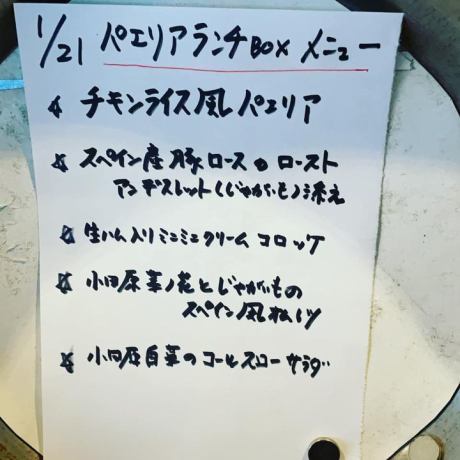 1/21 パエリアランチBOX メニュー
チキンライス風パエリア
スペイン産豚ロースのロースト
アンデスレット(じゃがいも)添え
生ハム入りミニミニクリームコロッケ
小田原菜ノ花とじゃがいもの
スペイン風松ノツ
小田原白菜のコールスローサラダ